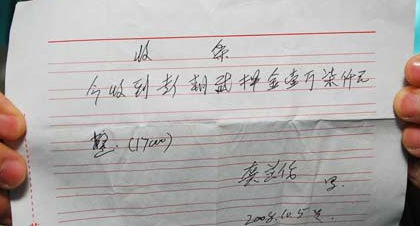 收 条
今收到彭朝武押金壹万柒仟元
整.(17000)
2008.10.5号.